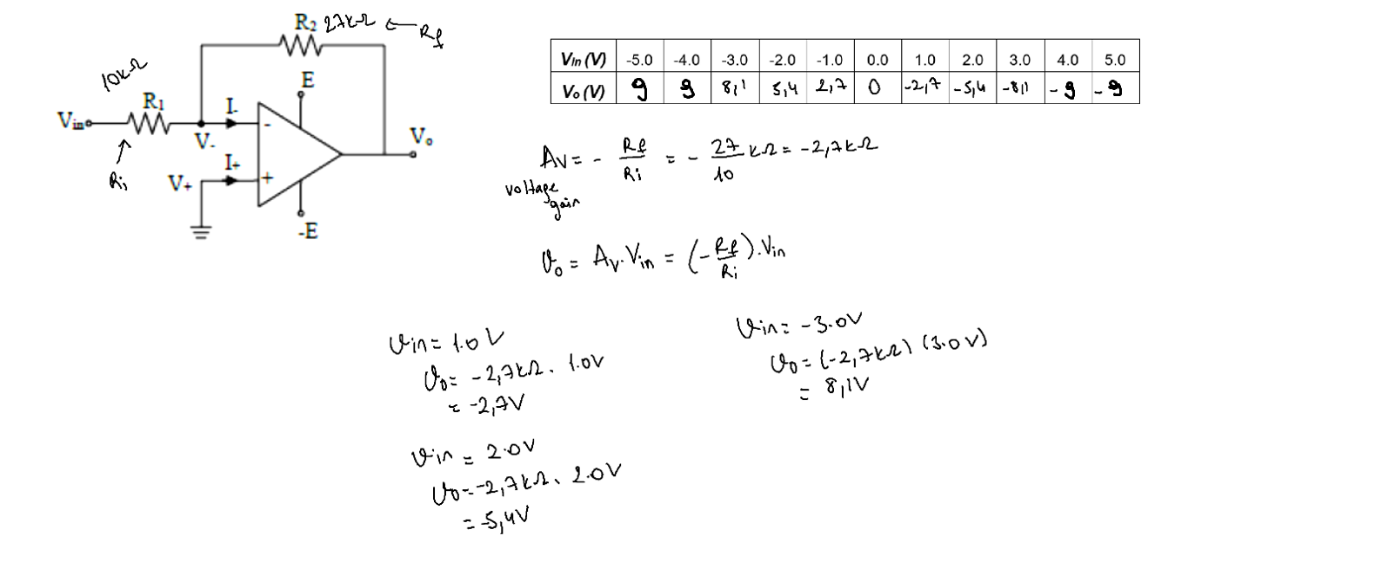 R₂ 27kΩ ← Rf
10kΩ
R₁
E
Vin
I-
-
V-
Vo
Ri
V+
I+
+
-E
Vin (V) -5.0 -4.0 -3.0 -2.0 -1.0 0.0 1.0 2.0 3.0 4.0 5.0
Vo (V) 9 9 8,1 5,4 2,7 0 -2,7 -5,4 -8,1 -9 -9
Av = - Rf/Ri = - 27/10 kΩ = -2,7kΩ
voltage
gain
Vo = Av.Vin = (-Rf/Ri).Vin
Vin = 1.0V
Vo = -2,7kΩ. 1.0V
= -2,7V
Vin = 2.0V
Vo = -2,7kΩ. 2.0V
= -5,4V
Vin = -3.0V
Vo = (-2,7kΩ) (3.0V)
= 8,1V